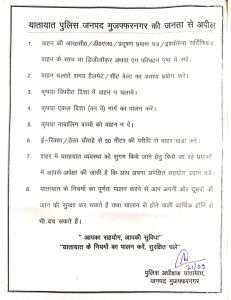 यातायात पुलिस जनपद मुजफ्फरनगर की जनता से अपील
1. वाहन की आरसी/डीएल/प्रदूषण प्रमाण पत्र/इंश्योरेन्स सर्टिफिकेट
वाहन के साथ या डिजीलॉकर अथवा एम परिवहन एप में रखें।
2. वाहन चलाते समय हैलमेट/सीट बेल्ट का अवश्य प्रयोग करें।
3. कृपया विपरीत दिशा में वाहन न चलायें।
4. कृपया एकल दिशा (वन वे) मार्ग का पालन करें।
5. कृपया नाबालिग बच्चों को वाहन न दें।
6. ई-रिक्शा/ठेला चौराहे से 50 मीटर की परिधि से बाहर खड़ा करें।
7. शहर में यातायात व्यवस्था को सुगम किये जाने हेतु किये जा रहे प्रयासों
में आपसे अपेक्षा की जाती है कि आप अपना अपेक्षित सहयोग प्रदान करें।
8. यातायात के नियमों का पूर्णतः पालन करने से आप अपनी और दूसरों की
जान की सुरक्षा कर सकते हैं तथा चालान से होने वाली आर्थिक हानि से
भी बच सकते है।
" आपका सहयोग, आपकी सुविधा"
"यातायात के नियमों का पालन करें, सुरक्षित चलें"
21/09
पुलिस अधीक्षक यातायात,
जनपद मुजफ्फरनगर